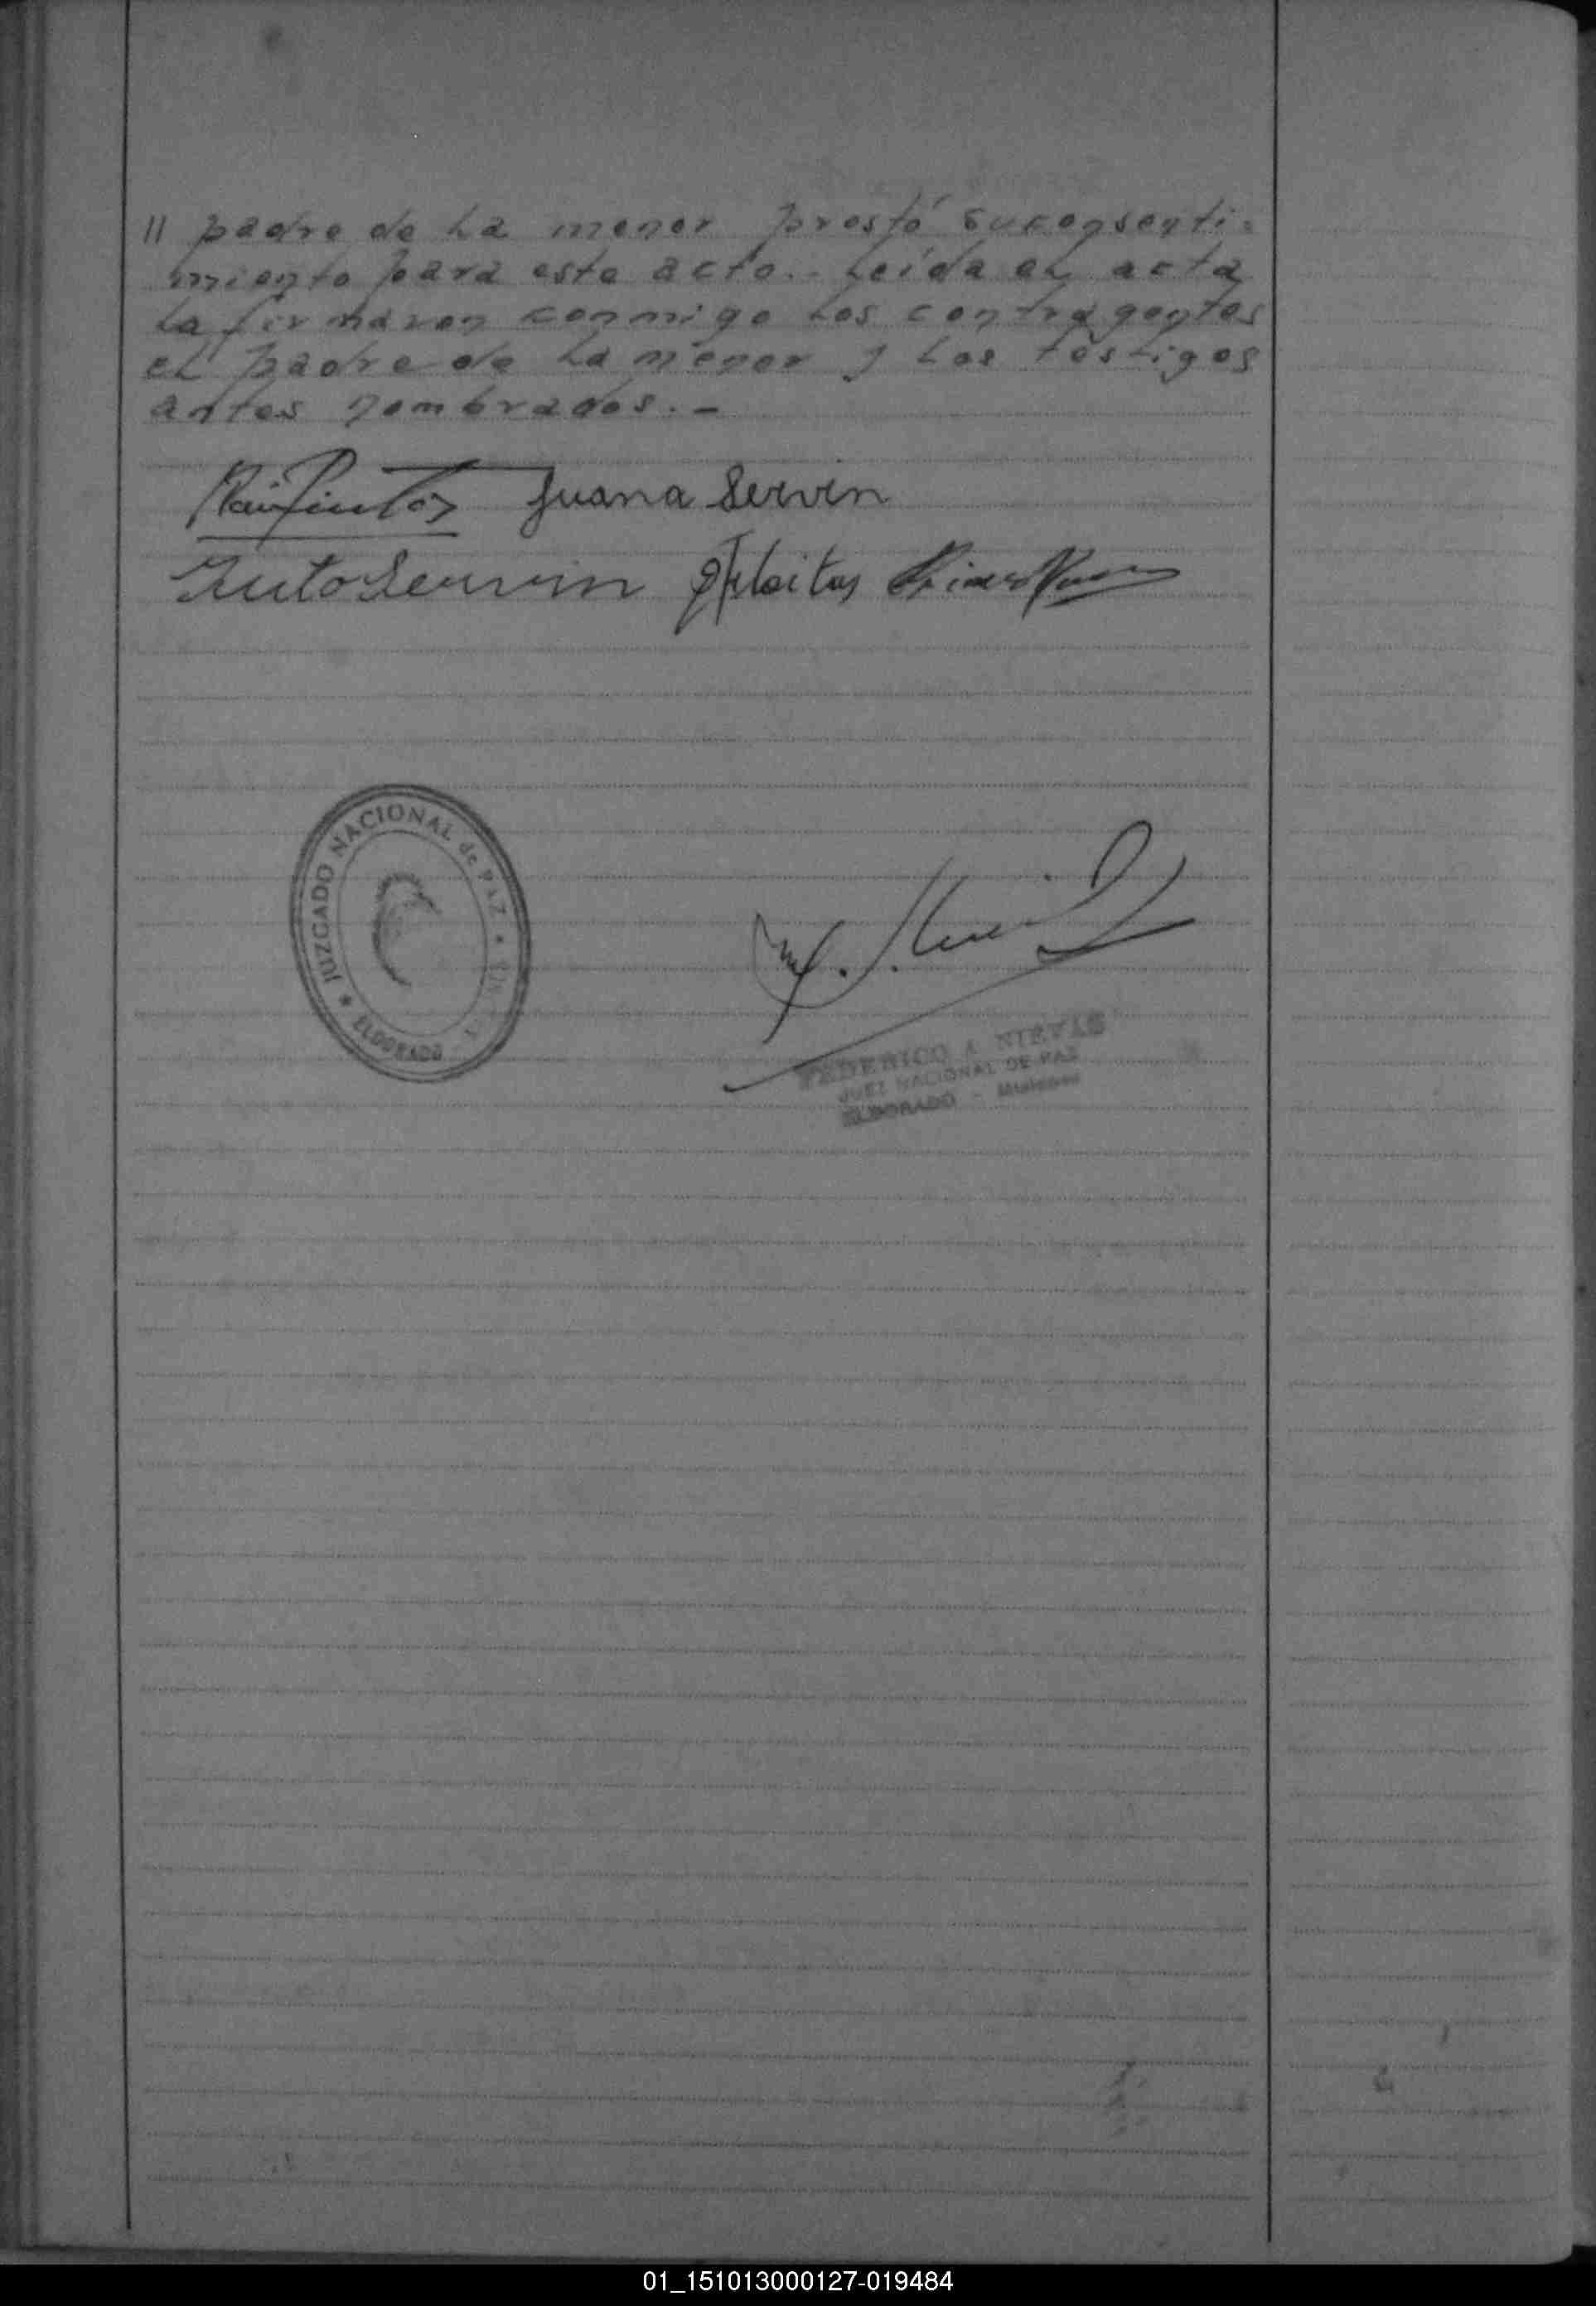 // padre de la menor prestó su consenti-
miento para este acto.- Leída el acta
la firmaron conmigo los contrayentes
el padre de la menor y los testigos
antes nombrados.-
Juana Servin
Servin Fleitas
JUZGADO NACIONAL de PAZ
ELDORADO
FEDERICO A NIEVAS
JUEZ NACIONAL DE PAZ
ELDORADO - Misiones
01_151013000127-019484